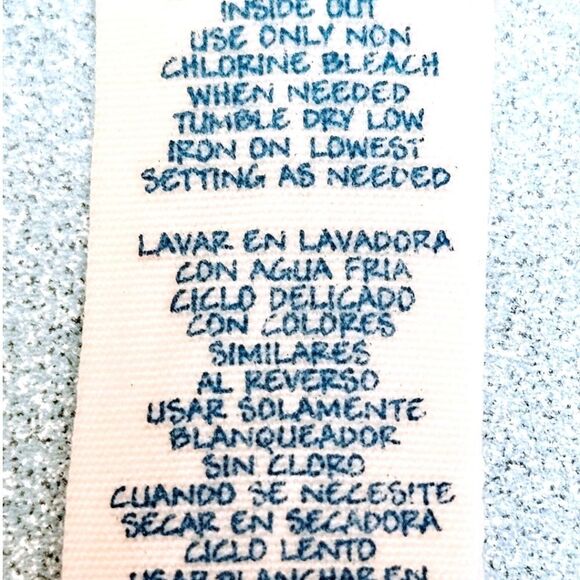 INSIDE OUT
USE ONLY NON
CHLORINE BLEACH
WHEN NEEDED
TUMBLE DRY LOW
IRON ON LOWEST
SETTING AS NEEDED
LAVAR EN LAVADORA
CON AGUA FRIA
CICLO DELICADO
CON COLORES
SIMILARES
AL REVERSO
USAR SOLAMENTE
BLANQUEADOR
SIN CLORO
CUANDO SE NECESITE
SECAR EN SECADORA
CICLO LENTO
USAR PLANCHAR EN